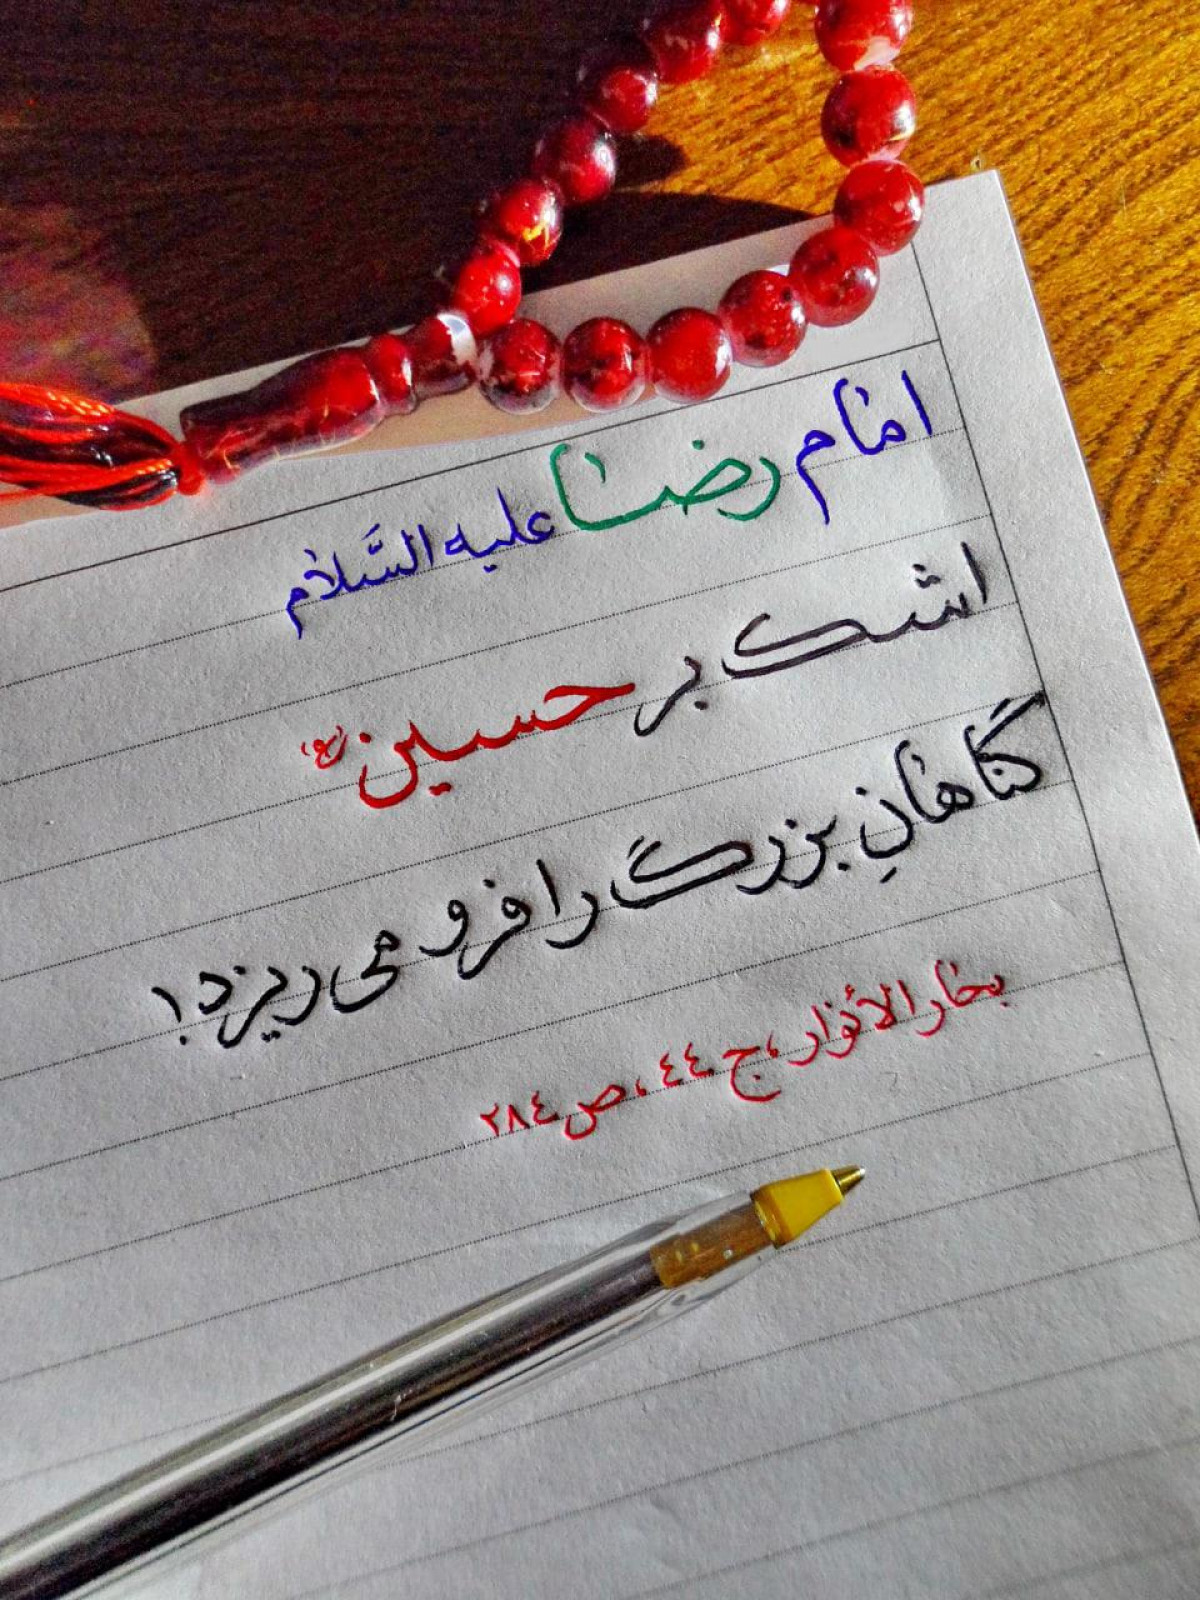 امام رضا علیه السَّلام
اشک بر حسین (ع)
گناهانِ بزرگ را فرو می ریزد!
بحار الأنوار، ج ٤٤، ص ٢٨٤